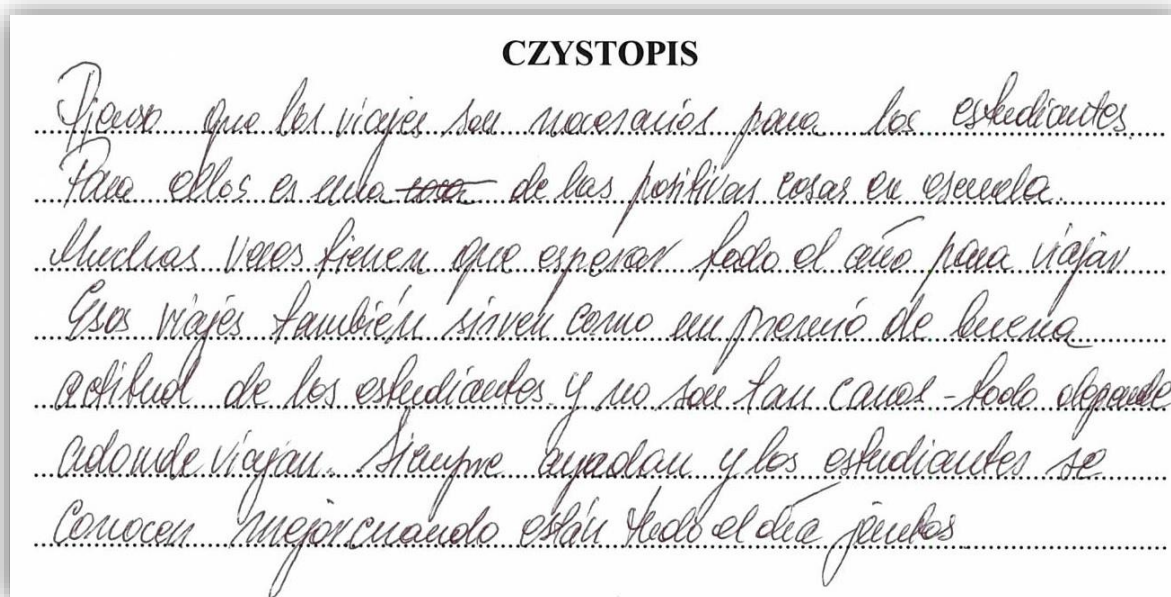 CZYSTOPIS
Pienso que los viajes son necesarios para los estudiantes.
Para ellos es una de las positivas cosas en escuela.
Muchas veces tienen que esperar todo el año para viajar
Esos viajes también sirven como un premio de buena
actitud de los estudiantes y no son tan caros - todo depende
adonde viajan. Siempre ayudan y los estudiantes se
conocen mejor cuando están todo el día juntos